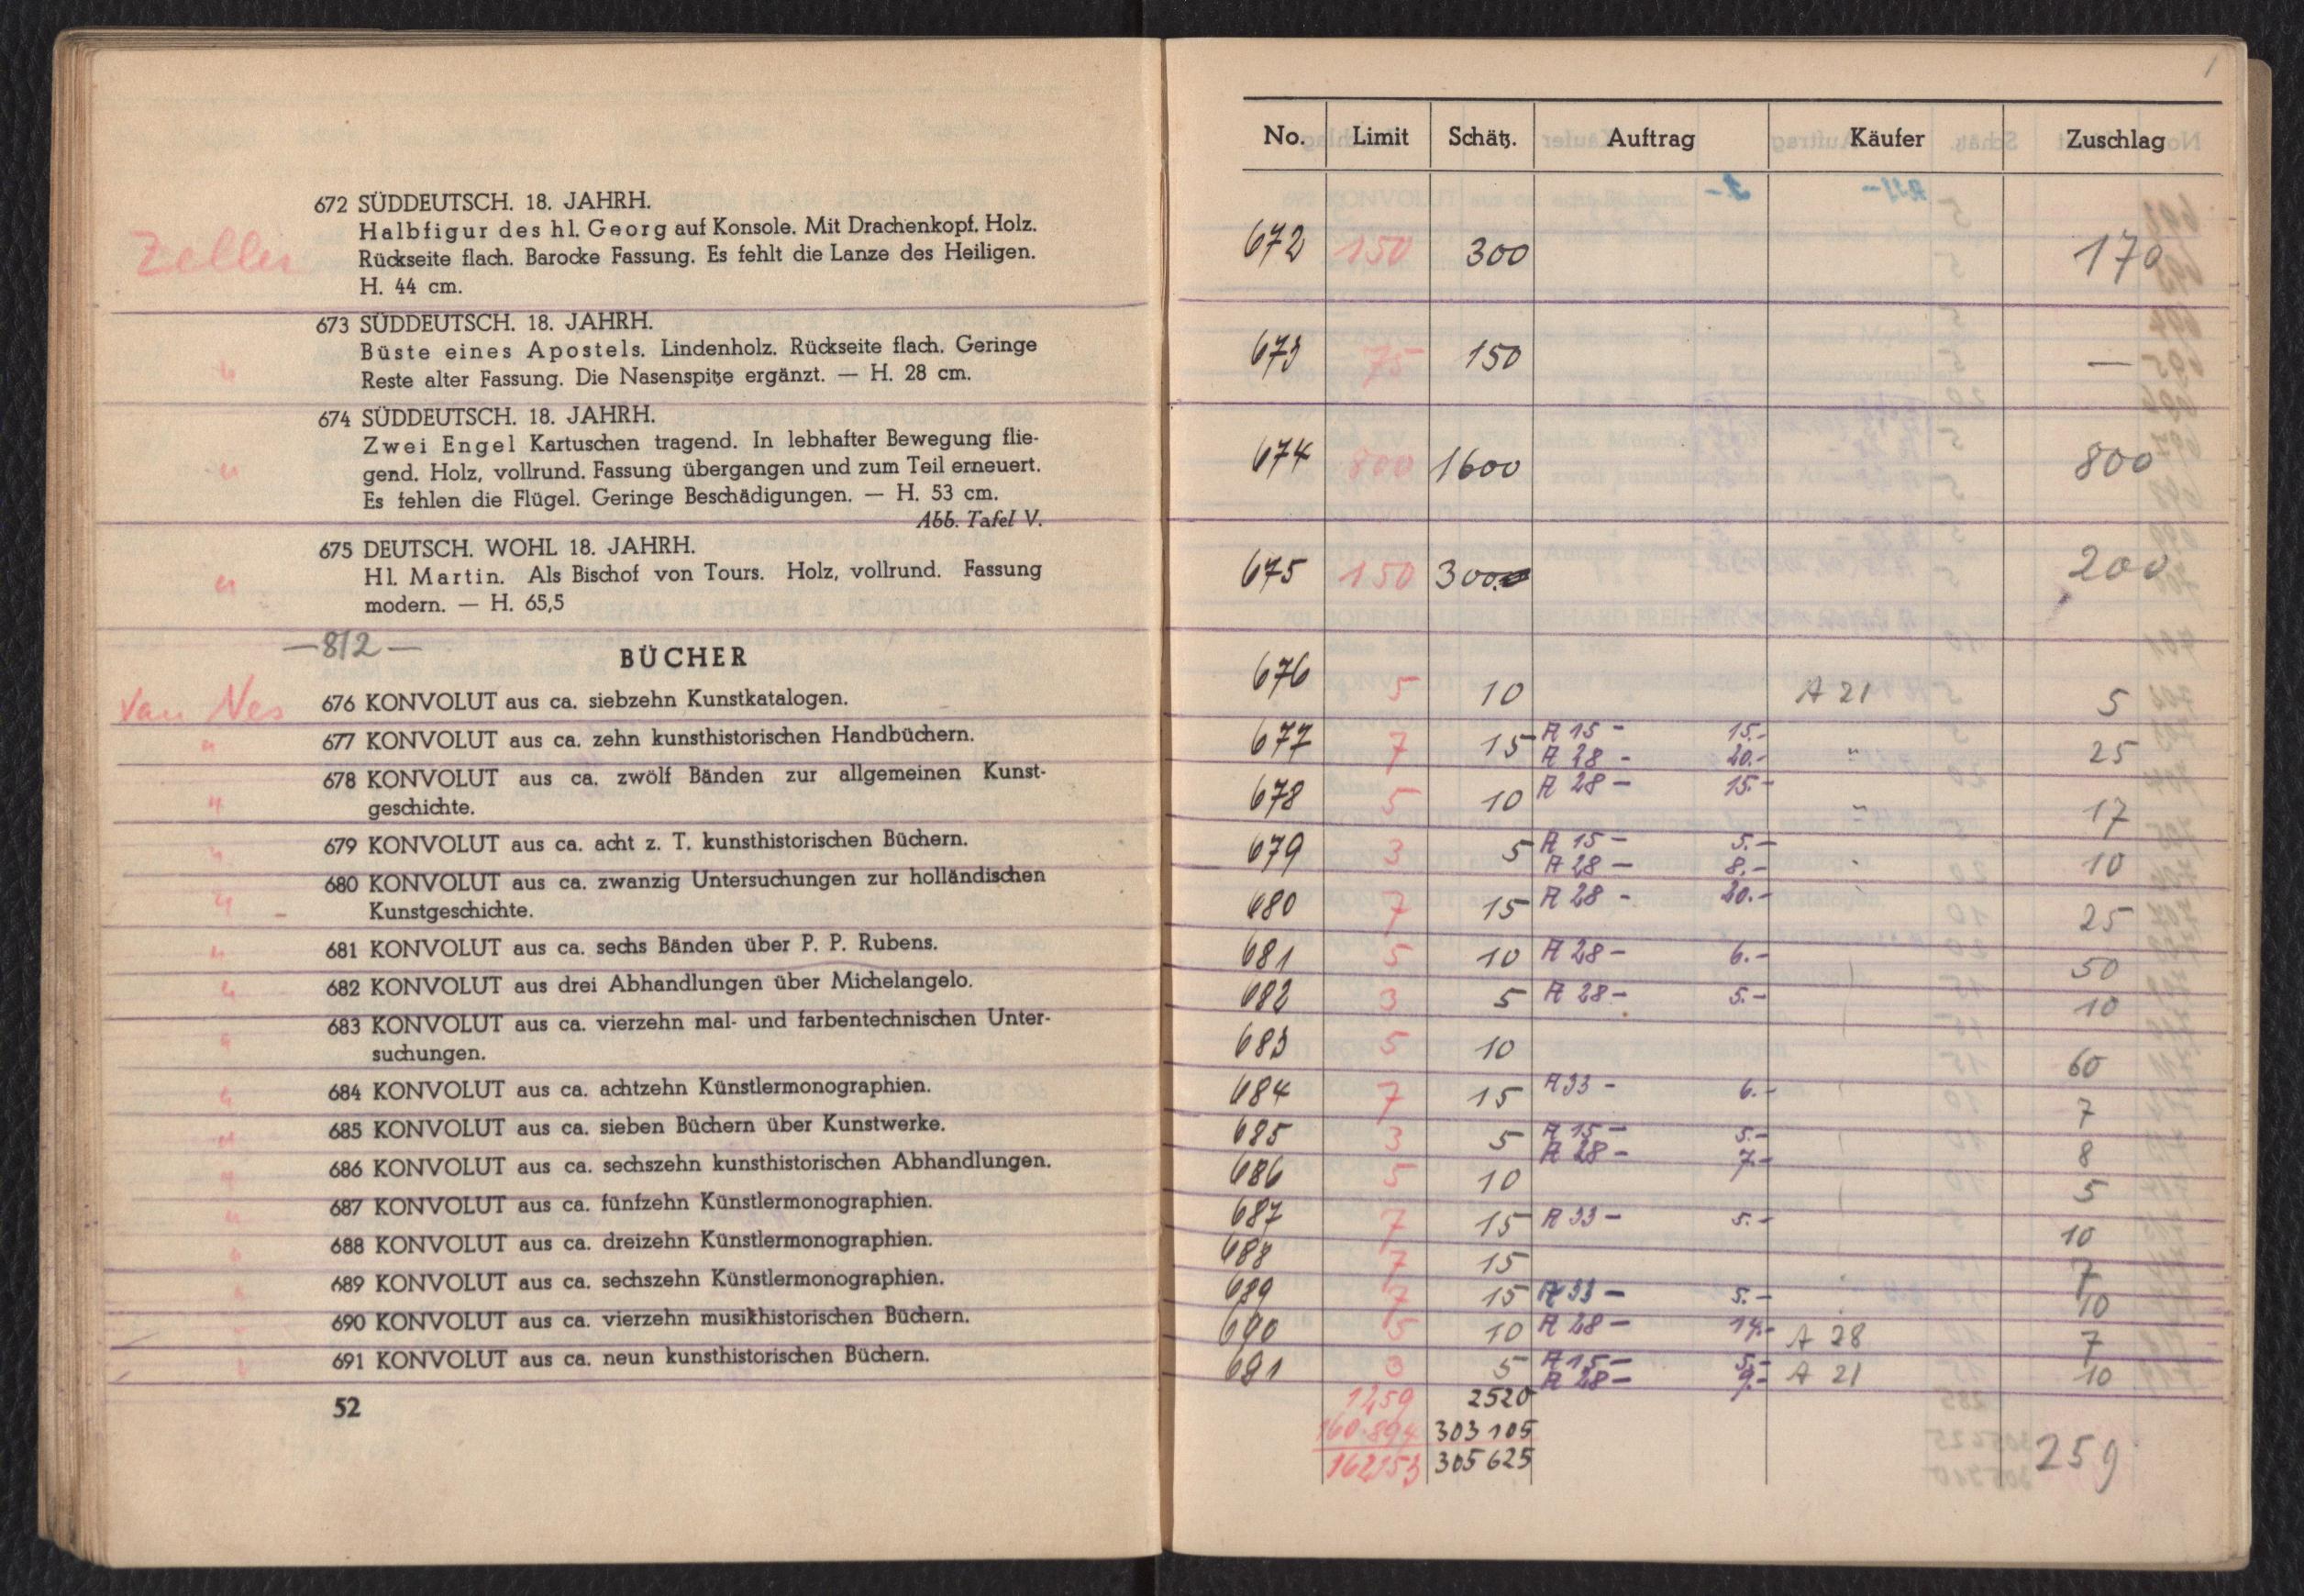 672 SÜDDEUTSCH. 18. JAHRH.
Halbfigur des hl. Georg auf Konsole. Mit Drachenkopf. Holz.
Zeller
Rückseite flach. Barocke Fassung. Es fehlt die Lanze des Heiligen.
H. 44 cm.
673 SÜDDEUTSCH. 18. JAHRH.
Büste eines Apostels. Lindenholz. Rückseite flach. Geringe
Reste alter Fassung. Die Nasenspitze ergänzt. — H. 28 cm.
674 SÜDDEUTSCH. 18. JAHRH.
Zwei Engel Kartuschen tragend. In lebhafter Bewegung flie-
gend. Holz, vollrund. Fassung übergangen und zum Teil erneuert.
Es fehlen die Flügel. Geringe Beschädigungen. — H. 53 cm.
Abb. Tafel V.
675 DEUTSCH. WOHL 18. JAHRH.
Hl. Martin. Als Bischof von Tours. Holz, vollrund. Fassung
modern. — H. 65,5
—812—
BÜCHER
van Nes 676 KONVOLUT aus ca. siebzehn Kunstkatalogen.
677 KONVOLUT aus ca. zehn kunsthistorischen Handbüchern.
678 KONVOLUT aus ca. zwölf Bänden zur allgemeinen Kunst-
geschichte.
679 KONVOLUT aus ca. acht z. T. kunsthistorischen Büchern.
680 KONVOLUT aus ca. zwanzig Untersuchungen zur holländischen
Kunstgeschichte.
681 KONVOLUT aus ca. sechs Bänden über P. P. Rubens.
682 KONVOLUT aus drei Abhandlungen über Michelangelo.
683 KONVOLUT aus ca. vierzehn mal- und farbentechnischen Unter-
suchungen.
684 KONVOLUT aus ca. achtzehn Künstlermonographien.
685 KONVOLUT aus ca. sieben Büchern über Kunstwerke.
686 KONVOLUT aus ca. sechszehn kunsthistorischen Abhandlungen.
687 KONVOLUT aus ca. fünfzehn Künstlermonographien.
688 KONVOLUT aus ca. dreizehn Künstlermonographien.
689 KONVOLUT aus ca. sechszehn Künstlermonographien.
690 KONVOLUT aus ca. vierzehn musikhistorischen Büchern.
691 KONVOLUT aus ca. neun kunsthistorischen Büchern.
52
No. Limit Schätz. Auftrag Käufer Zuschlag
672 150 300 170
673 75 150 —
674 800 1600 800
675 150 300 200
676 5 10 A 21 5
677 7 15 A 15 - 15.- " 25
A 28 - 20.-
678 5 10 A 28 - 15.- " 17
679 3 5 A 15 - 5.- 10
A 28 - 8.-
680 7 15 A 28 - 20.- 25
681 5 10 A 28 - 6.- 50
682 3 5 A 28 - 5.- 10
683 5 10 60
684 7 15 A 33 - 6.- 7
685 3 5 A 15 - 5.- 8
A 28 - 7.-
686 5 10 5
687 7 15 A 33 - 5.- 10
688 7 15 7
689 7 15 A 33 - 5.- 10
690 5 10 A 28 - 14.- A 28 7
681 3 5 A 15 - 5.- A 21 10
A 28 - 9.-
1259 2520
160.894 303 105
162153 305 625
259